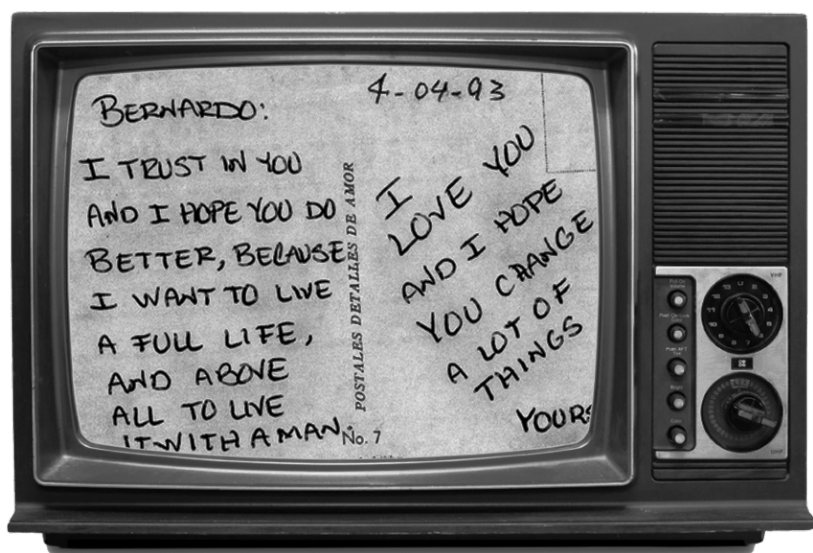 BERNARDO:
4-04-93
I TRUST IN YOU
AND I HOPE YOU DO
BETTER, BECAUSE
I WANT TO LIVE
A FULL LIFE,
AND ABOVE
ALL TO LIVE
IT WITH A MAN.
POSTALES DETALLES DE AMOR
No. 7
I
LOVE YOU
AND I HOPE
YOU CHANGE
A LOT OF
THINGS
YOURS